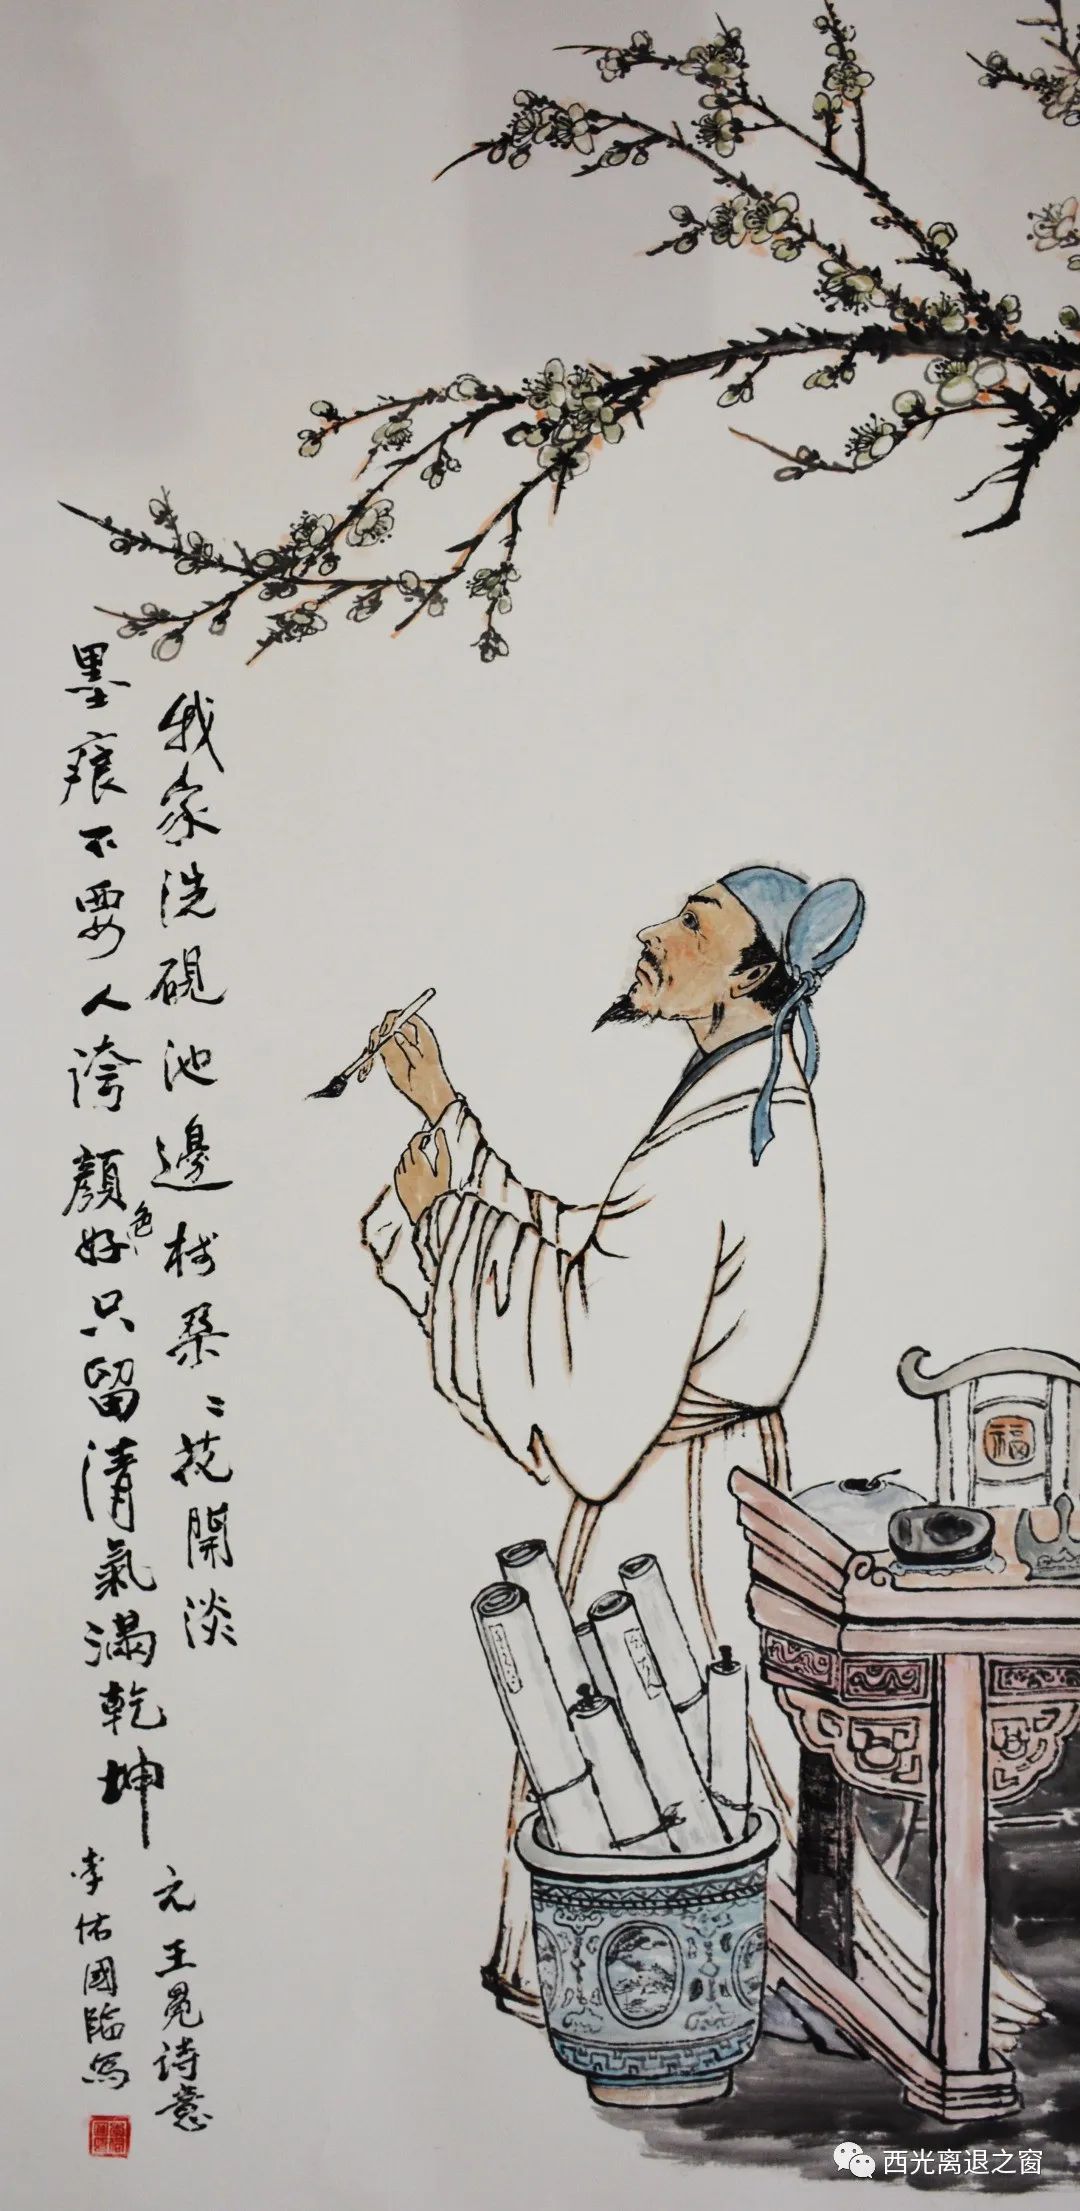 我家洗硯池邊树朵〻花開淡
墨痕不要人誇顏色好只留清氣滿乾坤
元王冕诗意
李佑國臨寫
福
西光离退之窗